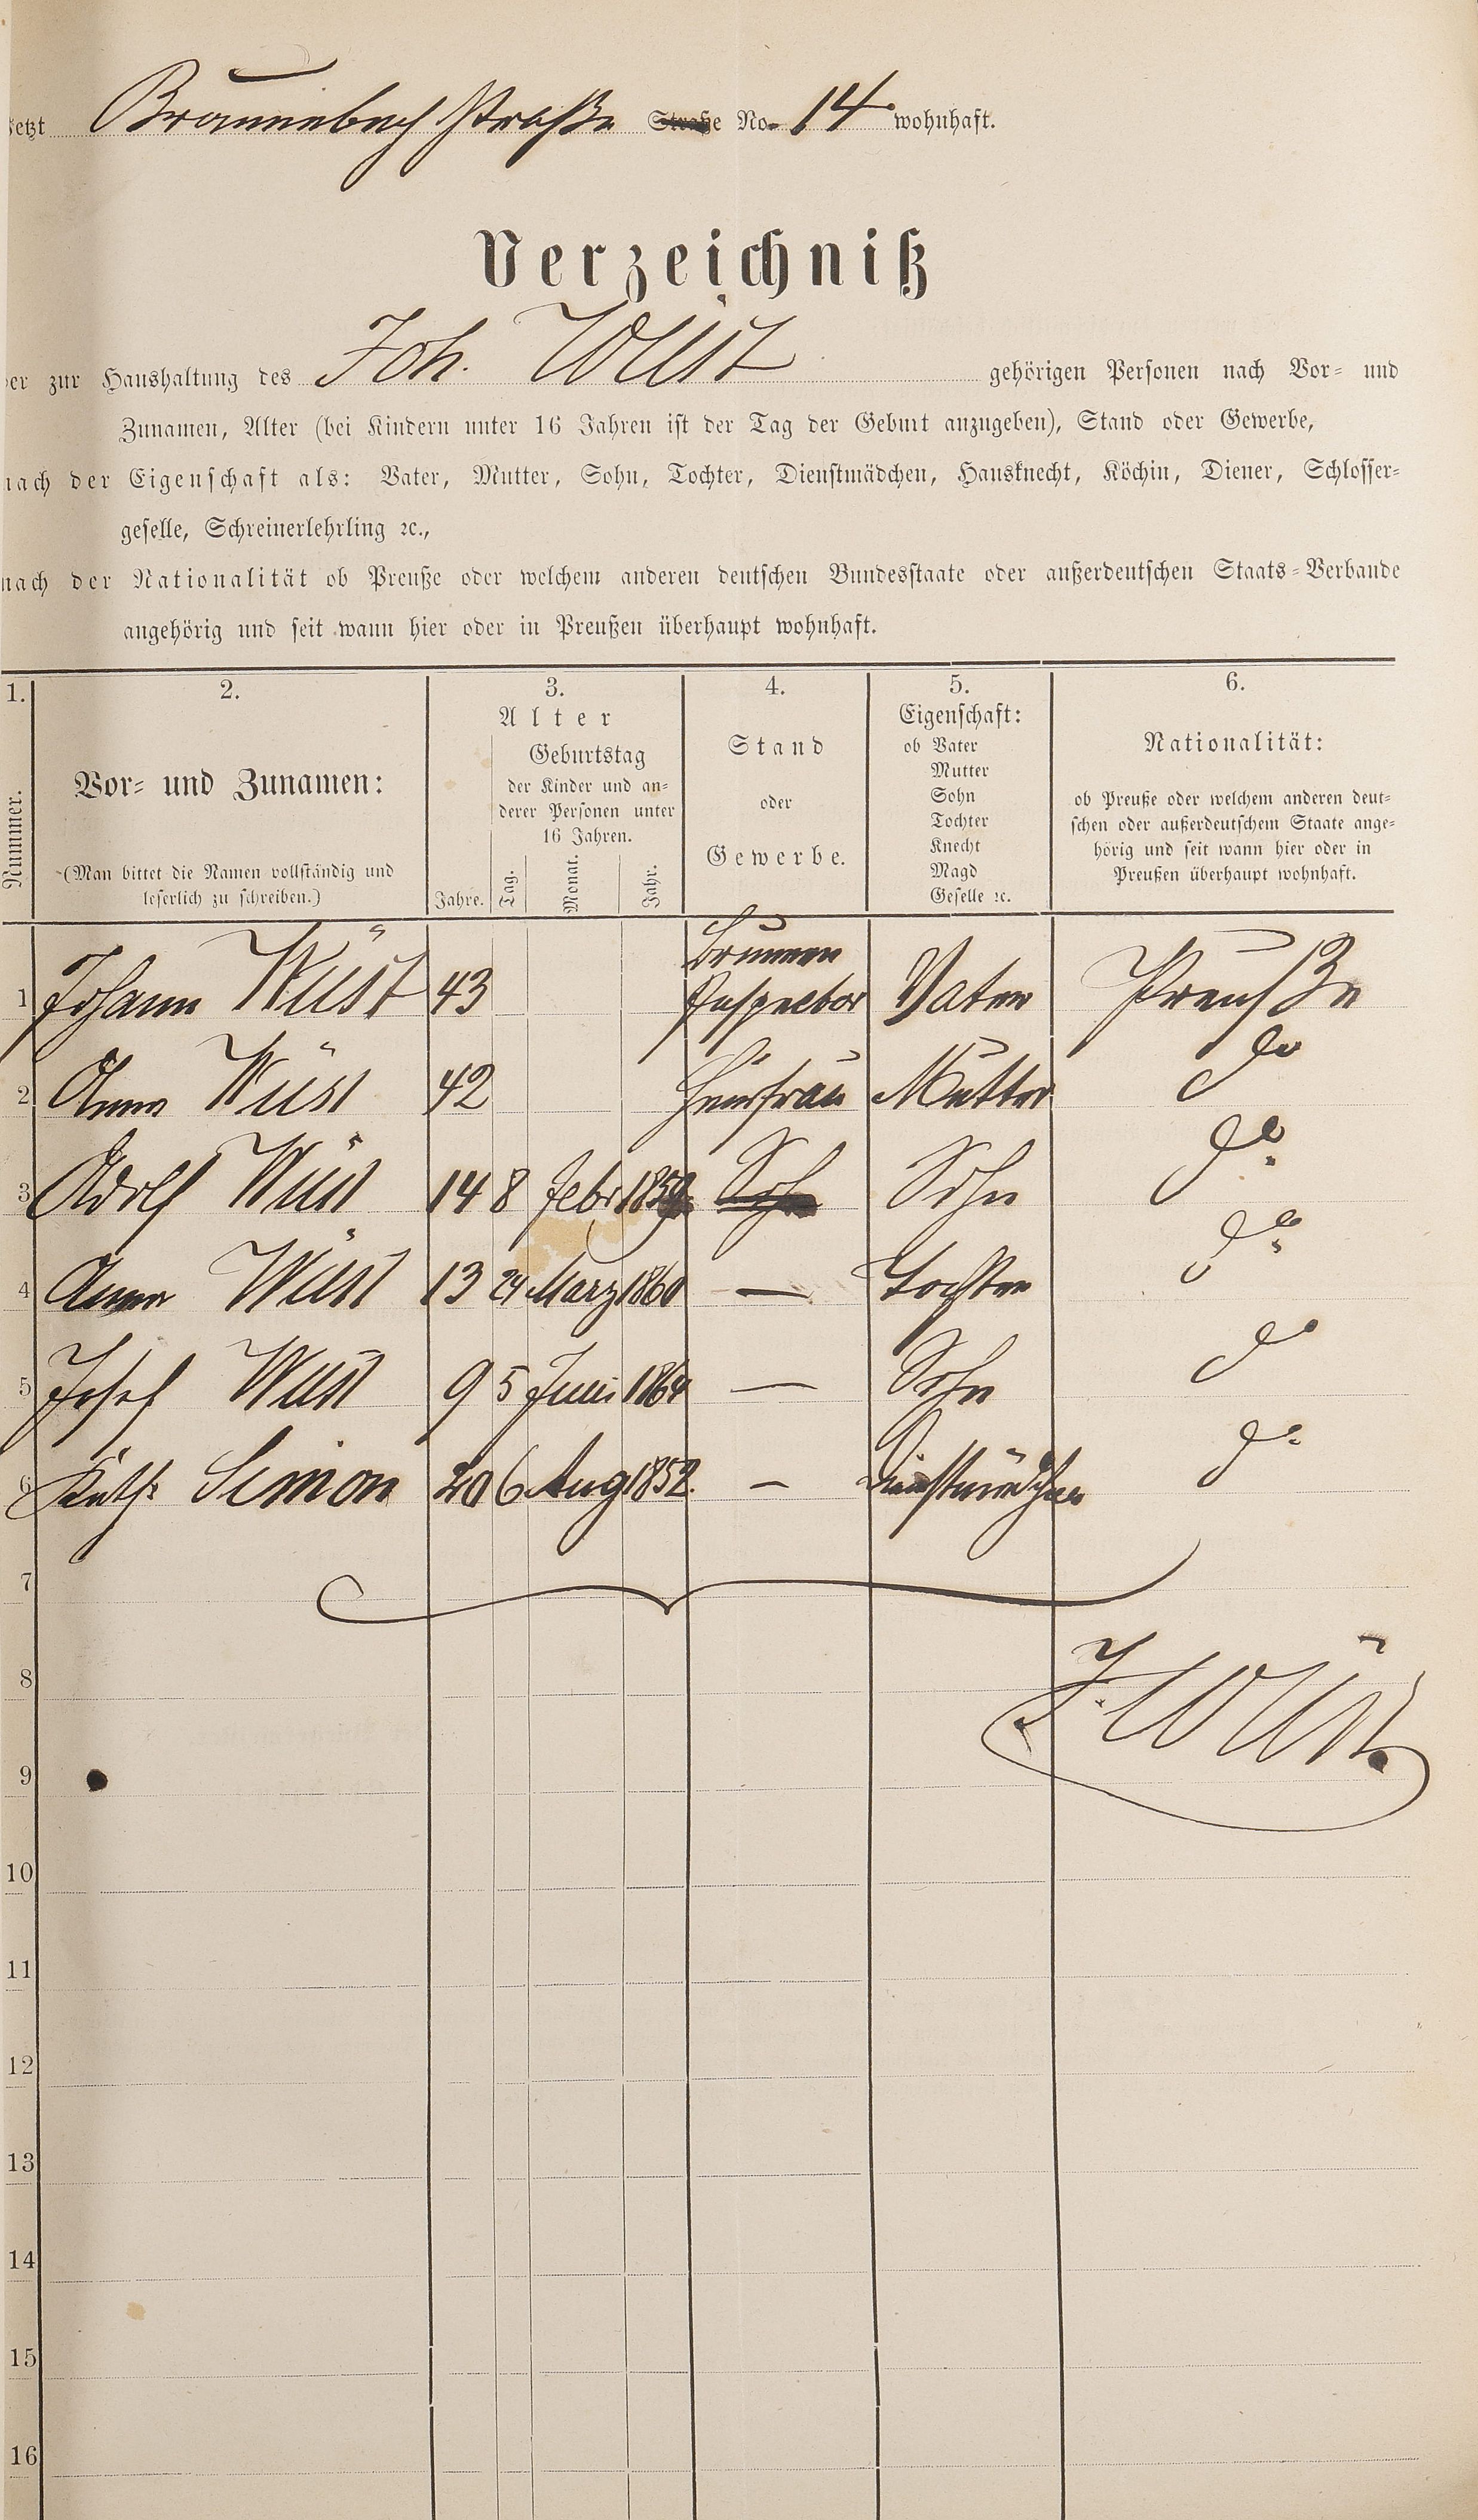 jetzt Braunebach Straße Straße No. 14 wohnhaft.
Verzeichniß
der zur Haushaltung des Joh. Wüst gehörigen Personen nach Vor- und
Zunamen, Alter (bei Kindern unter 16 Jahren ist der Tag der Geburt anzugeben), Stand oder Gewerbe,
nach der Eigenschaft als: Vater, Mutter, Sohn, Tochter, Dienstmädchen, Hausknecht, Köchin, Diener, Schlosser-
geselle, Schreinerlehrling ꝛc.,
nach der Nationalität ob Preuße oder welchem anderen deutschen Bundesstaate oder außerdeutschen Staats-Verbande
angehörig und seit wann hier oder in Preußen überhaupt wohnhaft.
1. 2. 3. 4. 5. 6.
Nummer.
Vor- und Zunamen:
(Man bittet die Namen vollständig und
leserlich zu schreiben.)
Alter
Geburtstag
der Kinder und an-
derer Personen unter
16 Jahren.
Jahre. Tag. Monat. Jahr.
Stand
oder
Gewerbe.
Eigenschaft:
ob Vater
Mutter
Sohn
Tochter
Knecht
Magd
Geselle ꝛc.
Nationalität:
ob Preuße oder welchem anderen deut-
schen oder außerdeutschem Staate ange-
hörig und seit wann hier oder in
Preußen überhaupt wohnhaft.
1 Johann Wüst 43 Brunnen Inspector Vater Preuße
2 Anna Wüst 42 Hausfrau Mutter do
3 Adolf Wüst 14 8 Febr 1859 Sohn Sohn do
4 Anna Wüst 13 24 März 1860 — Tochter do
5 Josef Wüst 9 5 Juni 1864 — Sohn do
6 Kath. Simon 20 6 Aug 1852. — Dienstmädchen do
7
8
J. Wüst.
9
10
11
12
13
14
15
16